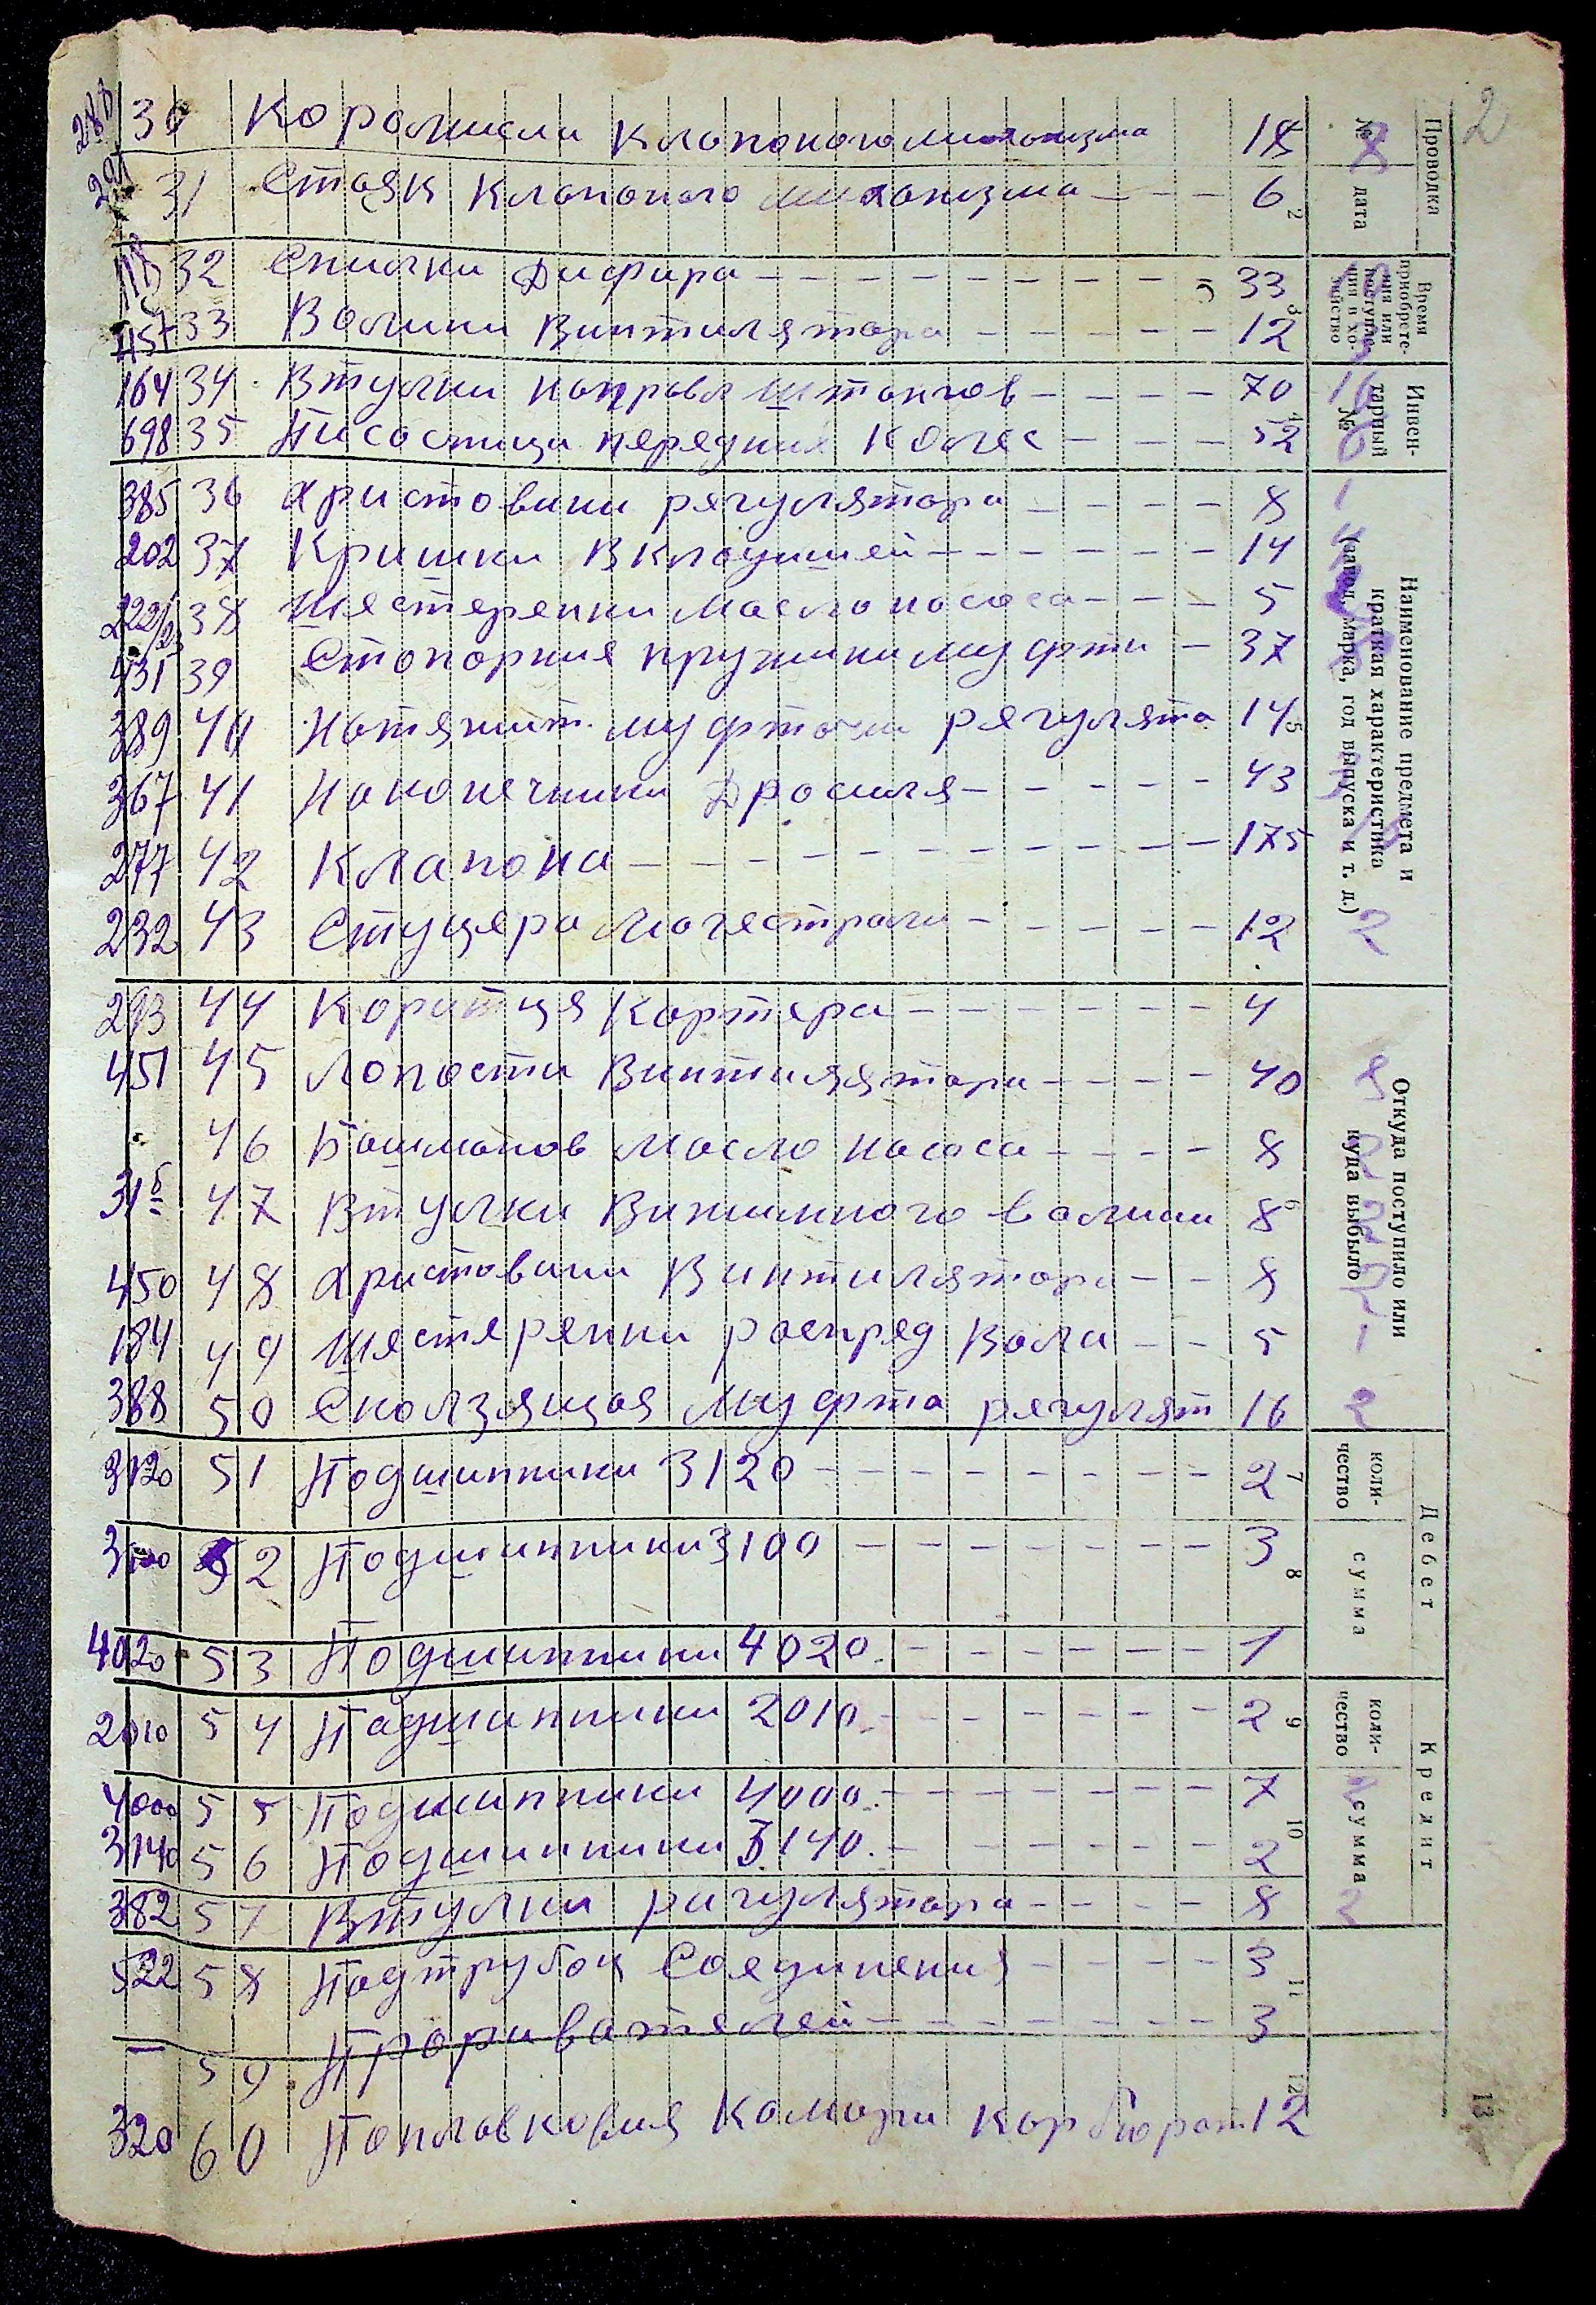 2
288 30 Коромисли клапоного миханизма 18
291 31 Стояк клапоного миханизма - - - 6
32 Спички Дифира - - - - - - - - 33
457 33 Волики Винтилятора - - - - - 12
164 34 Втулки направл штангов - - - - 70
698 35 передних колес - - - 52
385 36 Христовики регулятора - - - - 8
202 37 Кришки Вкладишей - - - - - - 14
222/23 38 Шестеренки маслонасоса - - - 5
431 39 Стопорние пружини муфти - 37
389 40 Натяжит. муфточки регулято 14
367 41 Наконечники Дроселя - - - - - 43
277 42 Клапона - - - - - - - - - - - 175
232 43 Стуцера Могестрали - - - - - 12
293 44 Коритця Картера - - - - - - 4
451 45 Лопости Винтилятора - - - - 40
46 Башмаков Масло насоса - - - - 8
31б 47 Втулки Вижимного волики 8
450 48 Христовики Винтилятора - - 8
184 49 Шестеренки распред Вала - - 5
388 50 Сколзящая Муфта регулят 16
3120 51 Подшипники 3120 - - - - - - - 2
3100 52 Подшипники 3100 - - - - - - - 3
4020 53 Подшипники 4020. - - - - - - 1
2010 54 Падшипники 2010. - - - - - - 2
4000 55 Подшипники 4000. - - - - - - 7
3140 56 Подшипники 3140. - - - - - - 2
382 57 Втулки ригулятора - - - - 8
522 58 Падтрубок Соединения - - - - 3
— 59. Прориватилей - - - - - - - 3
320 60 Поплавковия Камори карбюрат. 12
Проводка
№
дата
2
Время приобрете-
ния или
поступле-
ния в хо-
зяйство
3
Инвен-
тарный
№
4
Наименование предмета и
краткая характеристика
(завод, марка, год выпуска и т. д.)
5
Откуда поступило или
куда выбыло
6
Дебет
коли-
чество
7
сумма
8
Кредит
коли-
чество
9
сумма
10
11
12
13